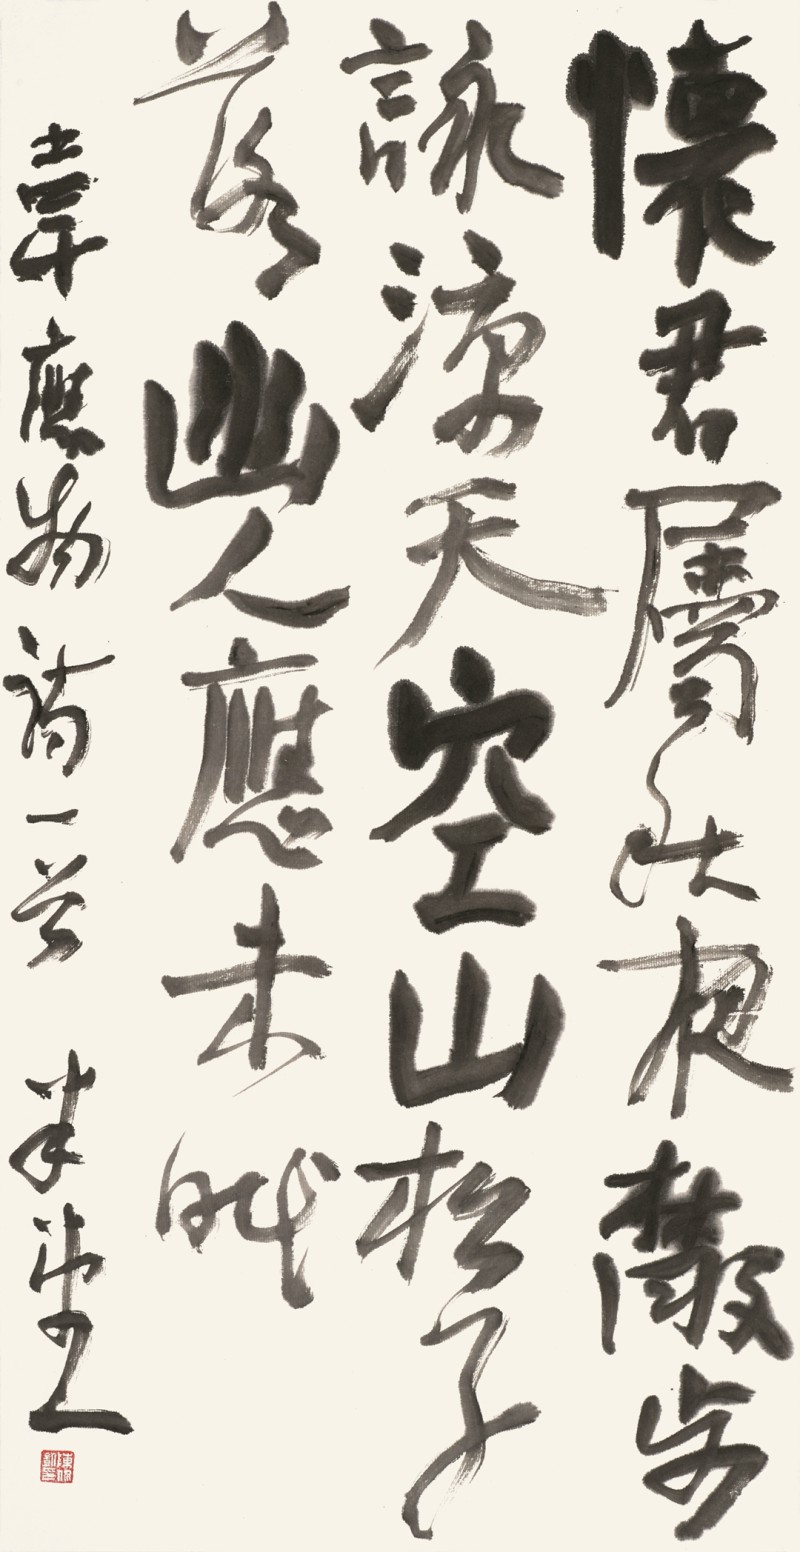 懷君屬秋夜散步
詠涼天空山松子
落幽人應未眠
韋應物詩一首